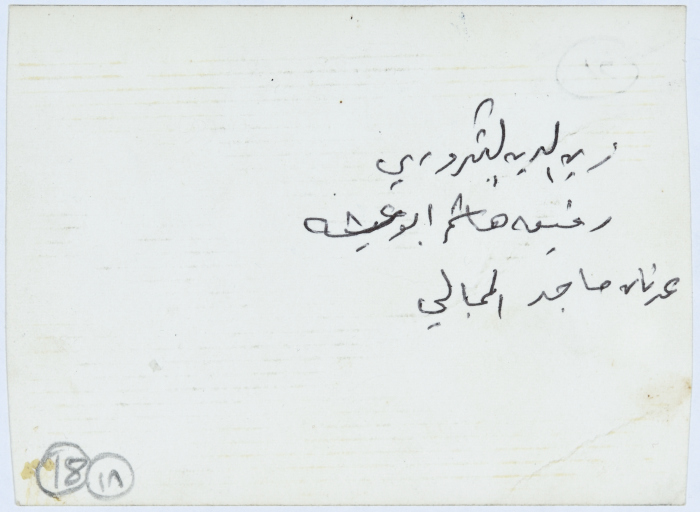 زين الدين البشروري
رفيعه هاشم ابو عيشه
عدنان ماجد المجالي
18
١٨